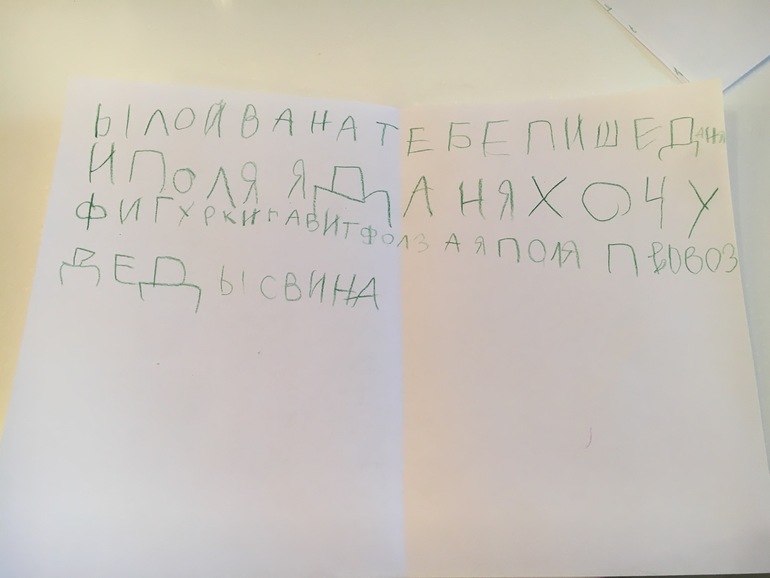 ЫЛОЙВАНАТЕБЕПИШЕДАНЯ
ИПОЛЯЯДАНЯХОЧУ
ФИГУРКИГАВИТФОЛЗАЯПОЛЯПВОВОЗ
ДЕДЫСВИНА